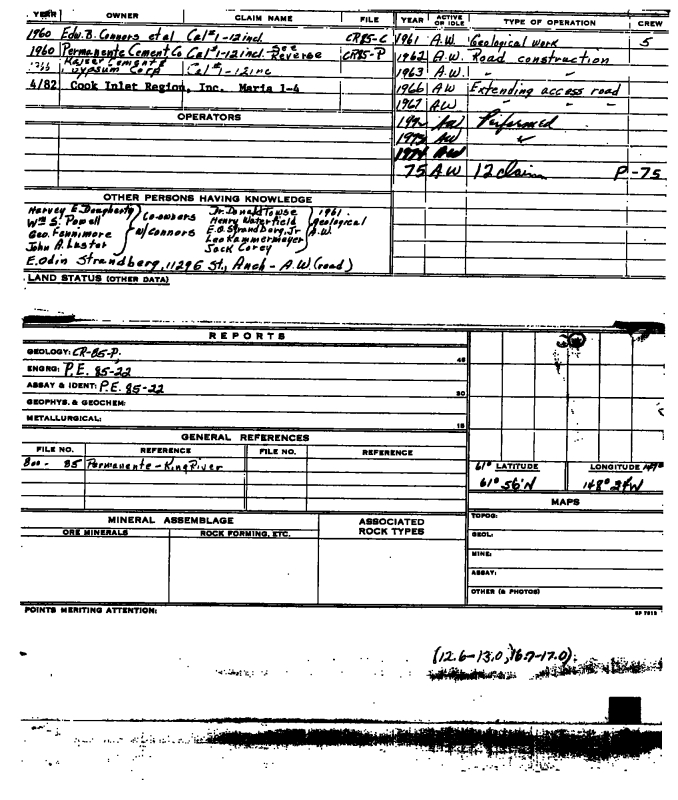 YEAR OWNER CLAIM NAME FILE YEAR ACTIVE OR IDLE TYPE OF OPERATION CREW
1960 Edw. B. Connors et al Cal #1-12 incl. CR85-C 1961 A.W. Geological work 5
1960 Permanente Cement Co Cal #1-12 incl. See Reverse CR85-P 1962 A.W. Road construction
Kaiser Cement & Gypsum Corp Cal #1-12 inc 1963 A.W. " "
4/82 Cook Inlet Region, Inc. Maria 1-4 1966 AW Extending access road
1967 AW " " "
OPERATORS
1972 AW Performed
1973 AW "
1974 AW
75 AW 12 claim P-75
OTHER PERSONS HAVING KNOWLEDGE
Harvey E. Dougherty
Wm S. Powell
Geo. Fennimore
John A. Lastor
Co-owners w/ Connors
Dr. Donald Towse
Henry Waterfield
E.O. Strandberg, Jr
Leo Kammermeyer
Jack Corey
1961. Geological A.W.
E. Odin Strandberg, 1129 E St., Anch - A.W. (road)
LAND STATUS (OTHER DATA)
REPORTS
GEOLOGY: CR-85-P.
45
ENGRG: P.E. 85-22
ASSAY & IDENT: P.E. 85-22
30
GEOPHYS. & GEOCHEM:
METALLURGICAL:
15
GENERAL REFERENCES
FILE NO. REFERENCE FILE NO. REFERENCE
800 - 85 Permanente - King River
61° LATITUDE LONGITUDE 149°
61° 56'N 148° 24'W
MAPS
TOPOG:
GEOL:
MINE:
ASSAY:
OTHER (& PHOTOS)
MINERAL ASSEMBLAGE ASSOCIATED ROCK TYPES
ORE MINERALS ROCK FORMING, ETC.
POINTS MERITING ATTENTION:
(12.6-13.0, 16.7-17.0)